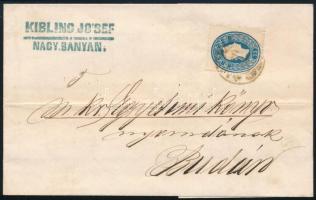 KIBLING JÓSEF
NAGY.BANYAN.
m. kir. Egyetemi Könyv
nyomdának
Budán